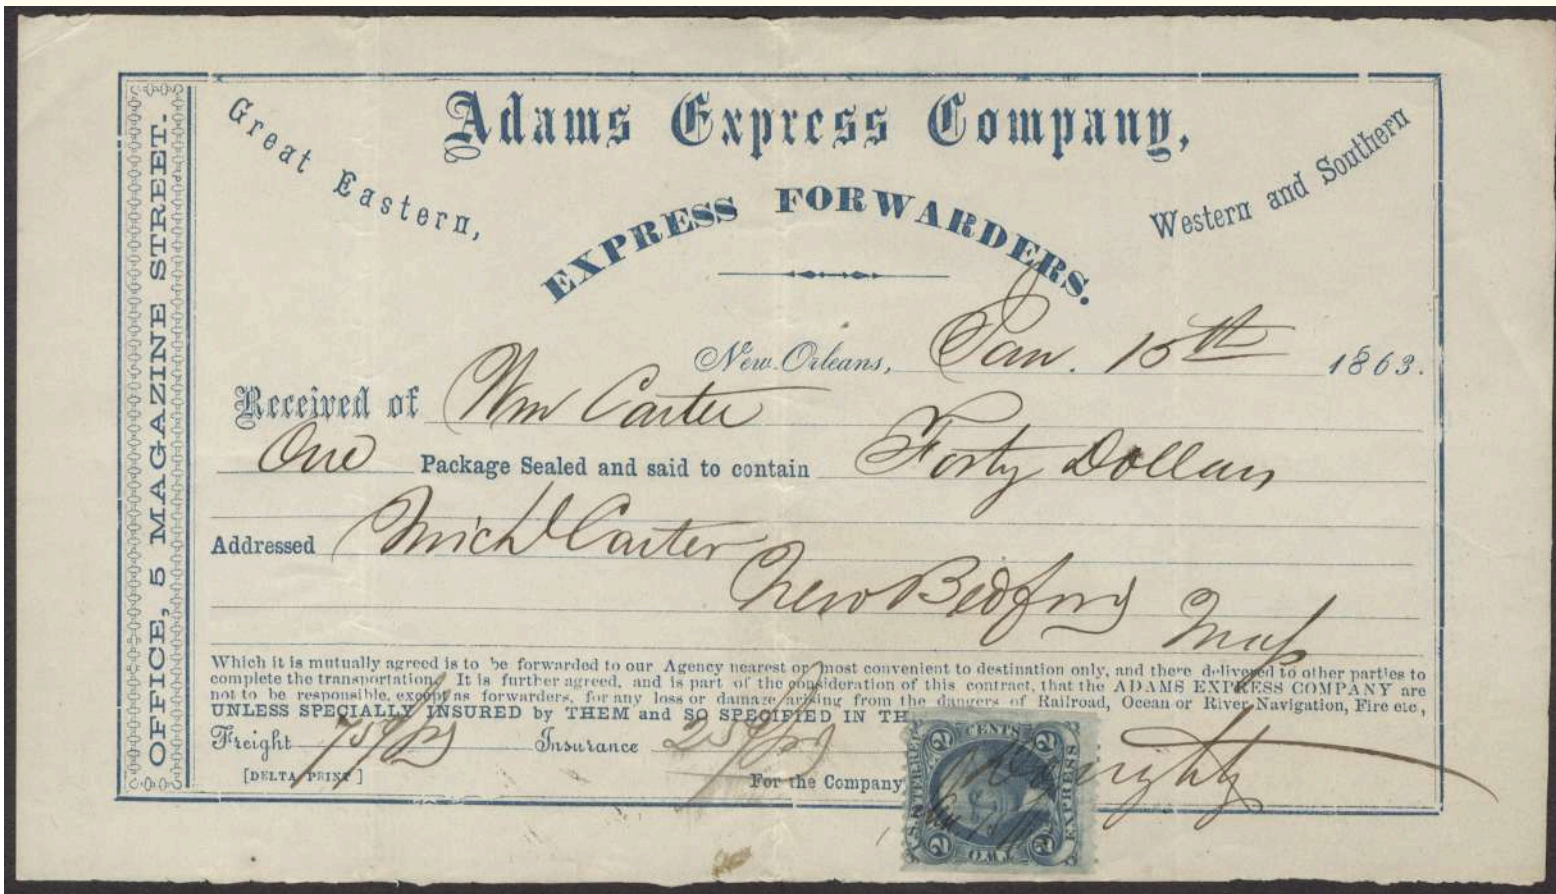 Adams Express Company,
Great Eastern,
Western and Southern
EXPRESS FORWARDERS.
OFFICE, 5 MAGAZINE STREET.
New Orleans, Jan. 15th 1863.
Received of Wm Carter
One Package Sealed and said to contain Forty Dollars
Addressed Michl Carter
New Bedford Mass
Which it is mutually agreed is to be forwarded to our Agency nearest or most convenient to destination only, and there delivered to other parties to
complete the transportation. It is further agreed, and is part of the consideration of this contract, that the ADAMS EXPRESS COMPANY are
not to be responsible, except as forwarders, for any loss or damage arising from the dangers of Railroad, Ocean or River Navigation, Fire etc,
UNLESS SPECIALLY INSURED by THEM and SO SPECIFIED IN TH
Freight 75¢ Insurance 25¢
[DELTA PRINT]
For the Company
2 CENTS 2
U.S. INTER. REV. EXPRESS
2 TWO 2